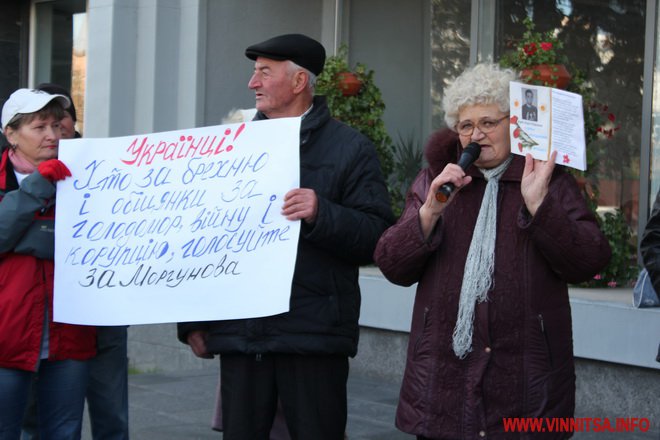 Українці!
Хто за брехню
і обіцянки за
голодомор, війну і
корупцію, голосуйте
за Моргунова
WWW.VINNITSA.INFO